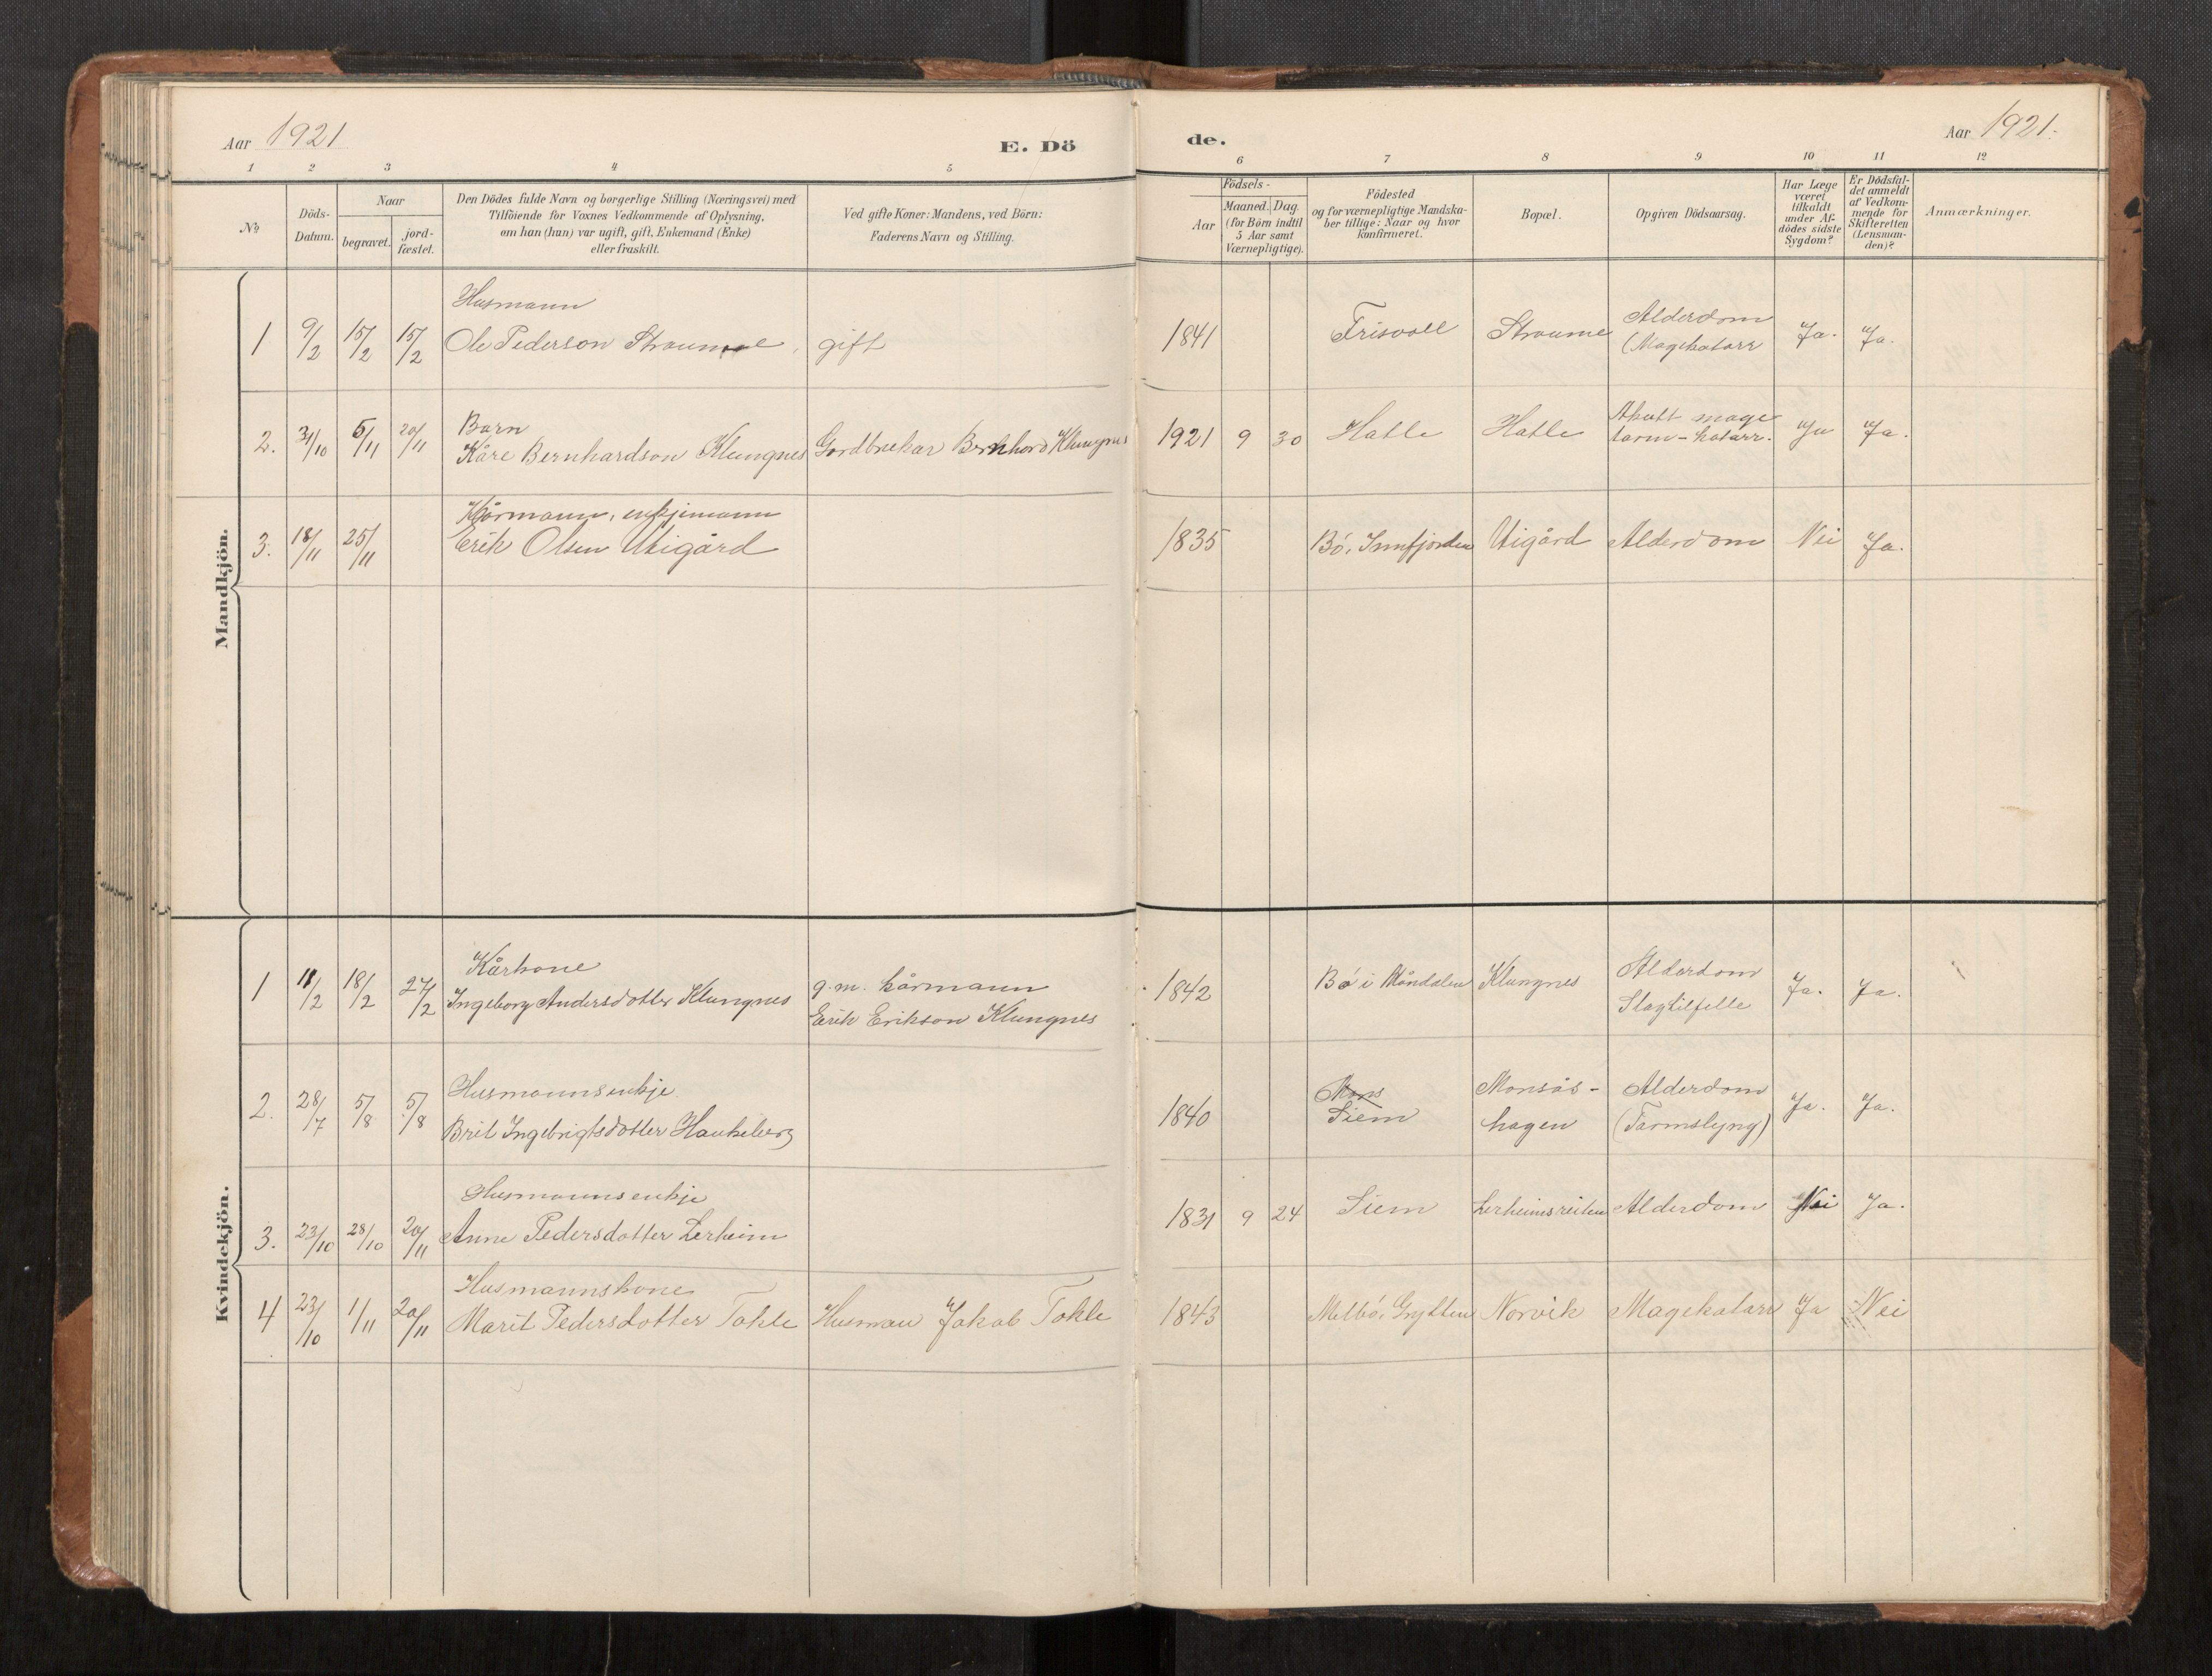 Aar 1921
E. Dö
de.
Aar 1921.
1 2 3 4 5 6 7 8 9 10 11 12
No
Döds-
Datum.
Naar
begravet.
jord-
fæstet.
Den Dödes fulde Navn og borgerlige Stilling (Næringsvei) med
Tilföiende for Voxnes Vedkommende af Oplysning,
om han (hun) var ugift, gift, Enkemand (Enke)
eller fraskilt.
Ved gifte Koner: Mandens, ved Börn:
Faderens Navn og Stilling.
Födsels-
Aar
Maaned. Dag.
(for Börn indtil
5 Aar samt
Værnepligtige).
Födested
og for værnepligtige Mandska-
ber tillige: Naar og hvor
konfirmeret.
Bopæl.
Opgiven Dödsaarsag.
Har Læge
været
tilkaldt
under Af-
dödes sidste
Sygdom?
Er Dödsfal-
det anmeldt
af Vedkom-
mende for
Skifteretten
(Lensman-
den)?
Anmærkninger.
Mandkjön.
Husmann
1 9/2 15/2 15/2 Ole Pederson Straume gift 1841 Frisvoll Straume Alderdom Ja. Ja.
(Magekatarr
Barn
2. 31/10 5/11 20/11 Kåre Bernhardson Klungnes Gardbrukar Bernhard Klungnes 1921 9 30 Hatle Hatle Akutt mage Ja Ja.
tarm-katarr.
Kårmann, enkjemann
3. 18/11 25/11 Erik Olsen Utigård 1835 Bö, Innfjorden Utigård Alderdom Nei Ja.
Kvindekjön.
Kårkone
1 11/2 18/2 27/2 Ingeborg Andersdotter Klungnes g.m. kårmann 1842 Bö i Måndalen Klungnes Alderdom Ja. Ja.
Erik Erikson Klungnes Slagtilfelle
Husmannsenkje
2. 28/7 5/8 5/8 Brit Ingebrigtsdotter Haukeberg 1840 Mons Siem Monsås- Alderdom Ja. Ja.
hagen (Tarmslyng)
Husmannsenkje
3. 23/10 28/10 20/11 Anne Pedersdotter Lerheim 1831 9 24 Siem Lerheimsreiten Alderdom Nei Ja.
Husmannskone
4 23/10 1/11 20/11 Marit Pedersdotter Tokle Husman Jakob Tokle 1843 Melbö, Grytten Norvik Magekatarr Ja Nei